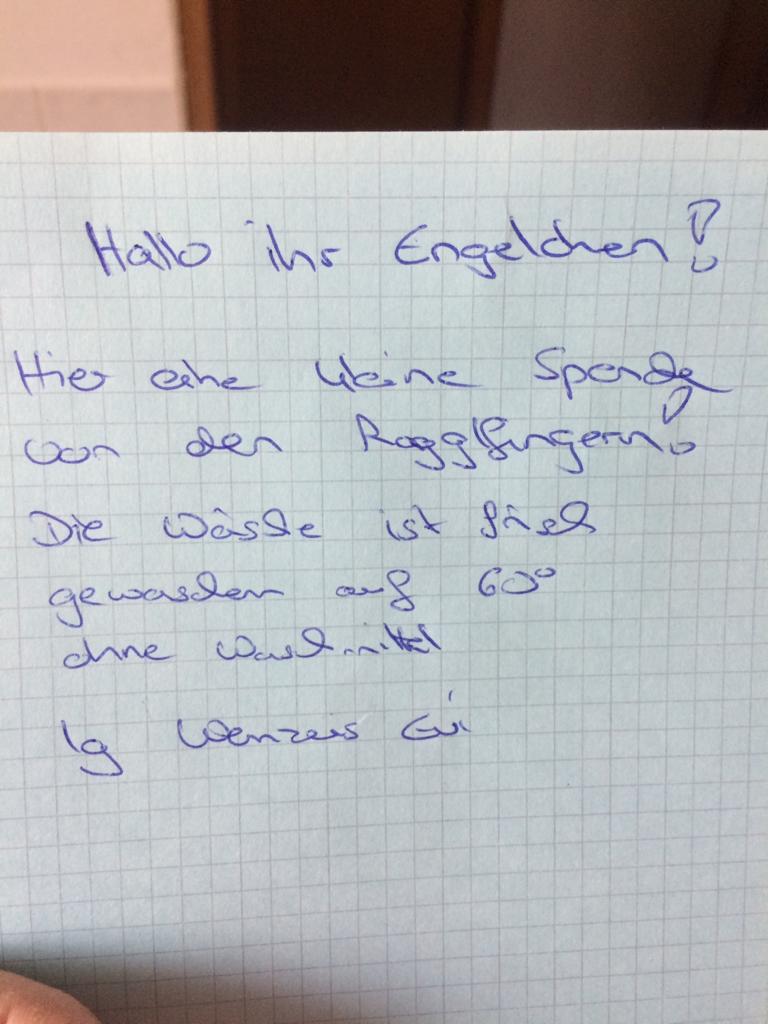 Hallo ihr Engelchen!
Hier eine kleine Spende
von den Rogglfingern!
Die Wäsche ist frisch
gewaschen auf 60°
ohne Waschmittel
lg Evi